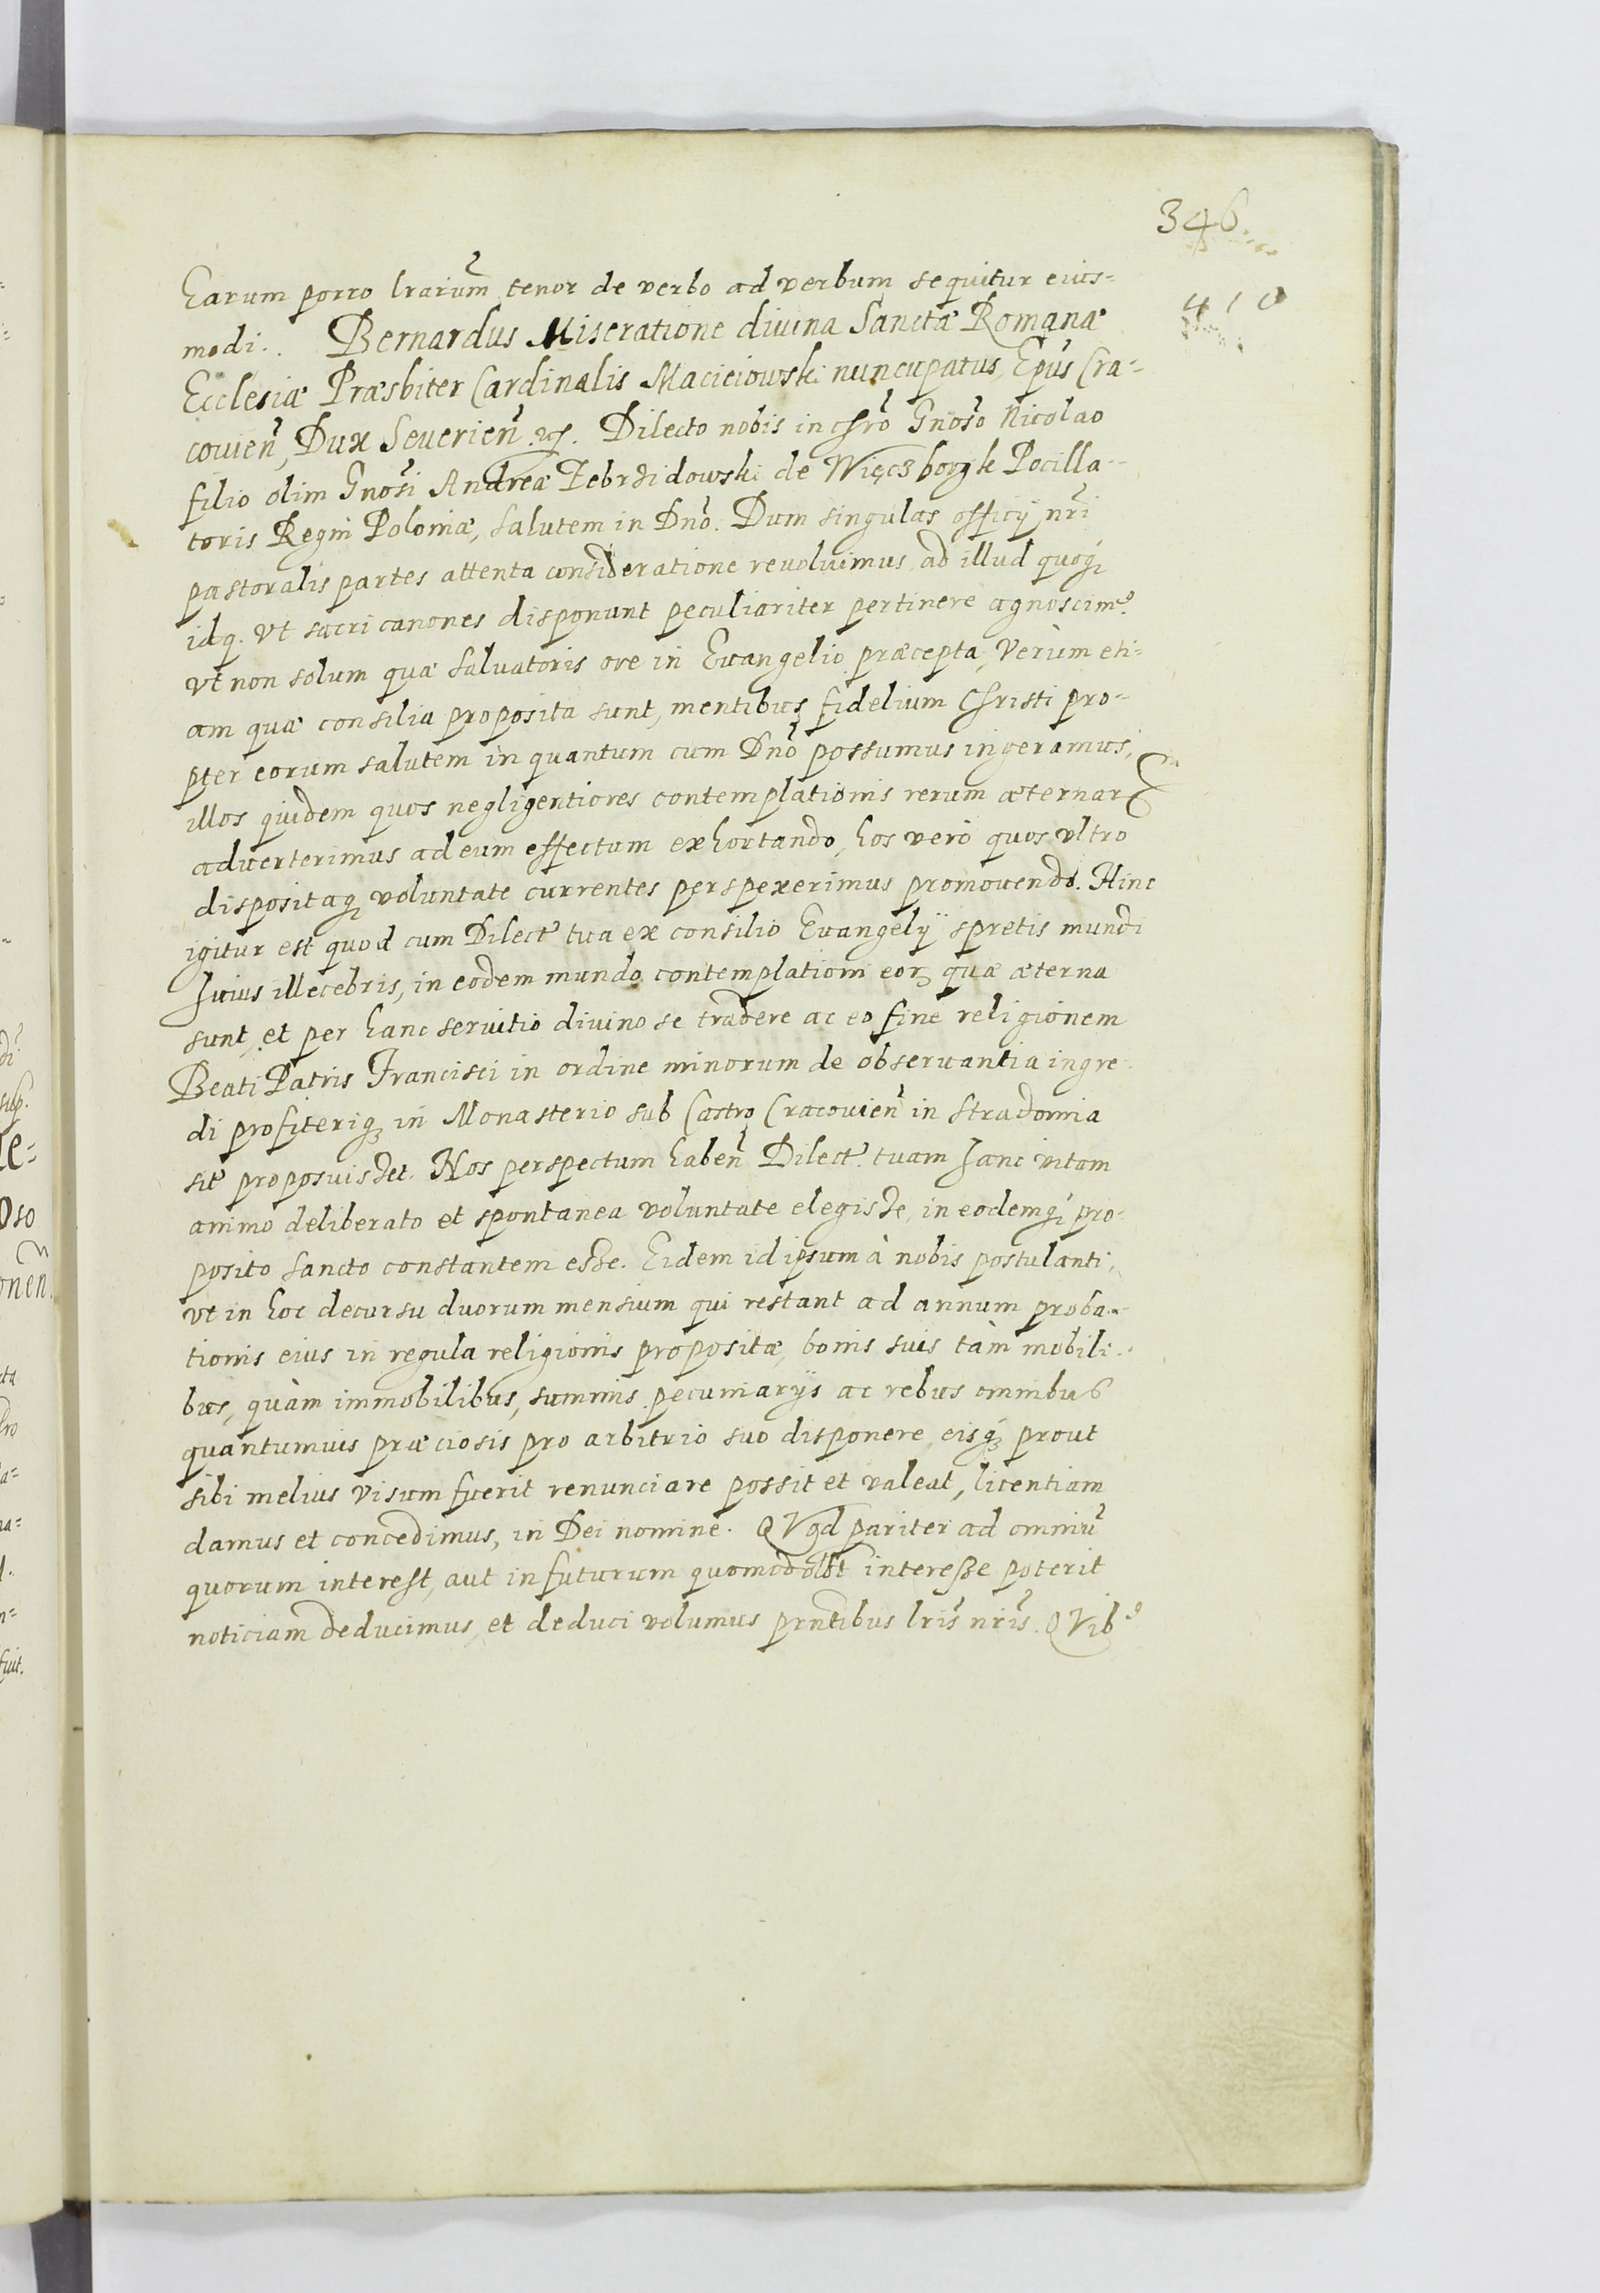 346.
410
Earum porro lrarum tenor de verbo ad verbum sequitur eius-
modi. Bernardus Miseratione diuina Sanctæ Romanæ
Ecclesiæ Præsbiter Cardinalis Macieiowski nuncupatus, Epus Cra-
couien, Dux Seuerien etc. Dilecto nobis in chro Gnoso Nicolao
filio olim Gnosi Andreæ Zebrzidowski de Więczborgk Pocilla-
toris Regni Poloniæ, salutem in Dno. Dum singulas officij nri
pastoralis partes attenta consideratione reuoluimus, ad illud quoq;
idq. vt sacri canones disponunt peculiariter pertinere agnoscim9
vt non solum quæ Saluatoris ore in Euangelio præcepta, Verùm eti-
am quæ consilia proposita sunt, mentibus fidelium Christi pro-
pter eorum salutem in quantum cum Dno possumus ingeramus,
illos quidem quos negligentiores contemplationis rerum æternar
aduerterimus ad eum effectum exhortando, hos verò quos vltro
dispositaq; voluntate currentes perspexerimus promouendo. Hinc
igitur est quod cum Dilect tua ex consilio Euangelij spretis mundi
huius illecebris, in eodem mundo contemplationi eor quæ æterna
sunt, et per hanc seruitio diuino se tradere ac eo fine religionem
Beati Patris Francisci in ordine minorum de obseruantia ingre-
di profiteriq; in Monasterio sub Castro Cracouien in Stradomia
sit proposuisset. Nos perspectum haben Dilect. tuam hanc vitam
animo deliberato et spontanea voluntate elegisse, in eodemq; pro-
posito sancto constantem esse. Eidem id ipsum à nobis postulanti,
vt in hoc decursu duorum mensium qui restant ad annum proba-
tionis eius in regula religionis propositæ, bonis suis tàm mobili-
bus, quàm immobilibus, summis pecuniarijs ac rebus omnibus
quantumuis præciosis pro arbitrio suo disponere, eisq; prout
sibi melius visum fuerit renunciare possit et valeat, licentiam
damus et concedimus, in Dei nomine. QVod pariter ad omniu
quorum interest, aut in futurum quomodolbt interesse poterit
noticiam deducimus, et deduci volumus prntibus lris nris. QVib9